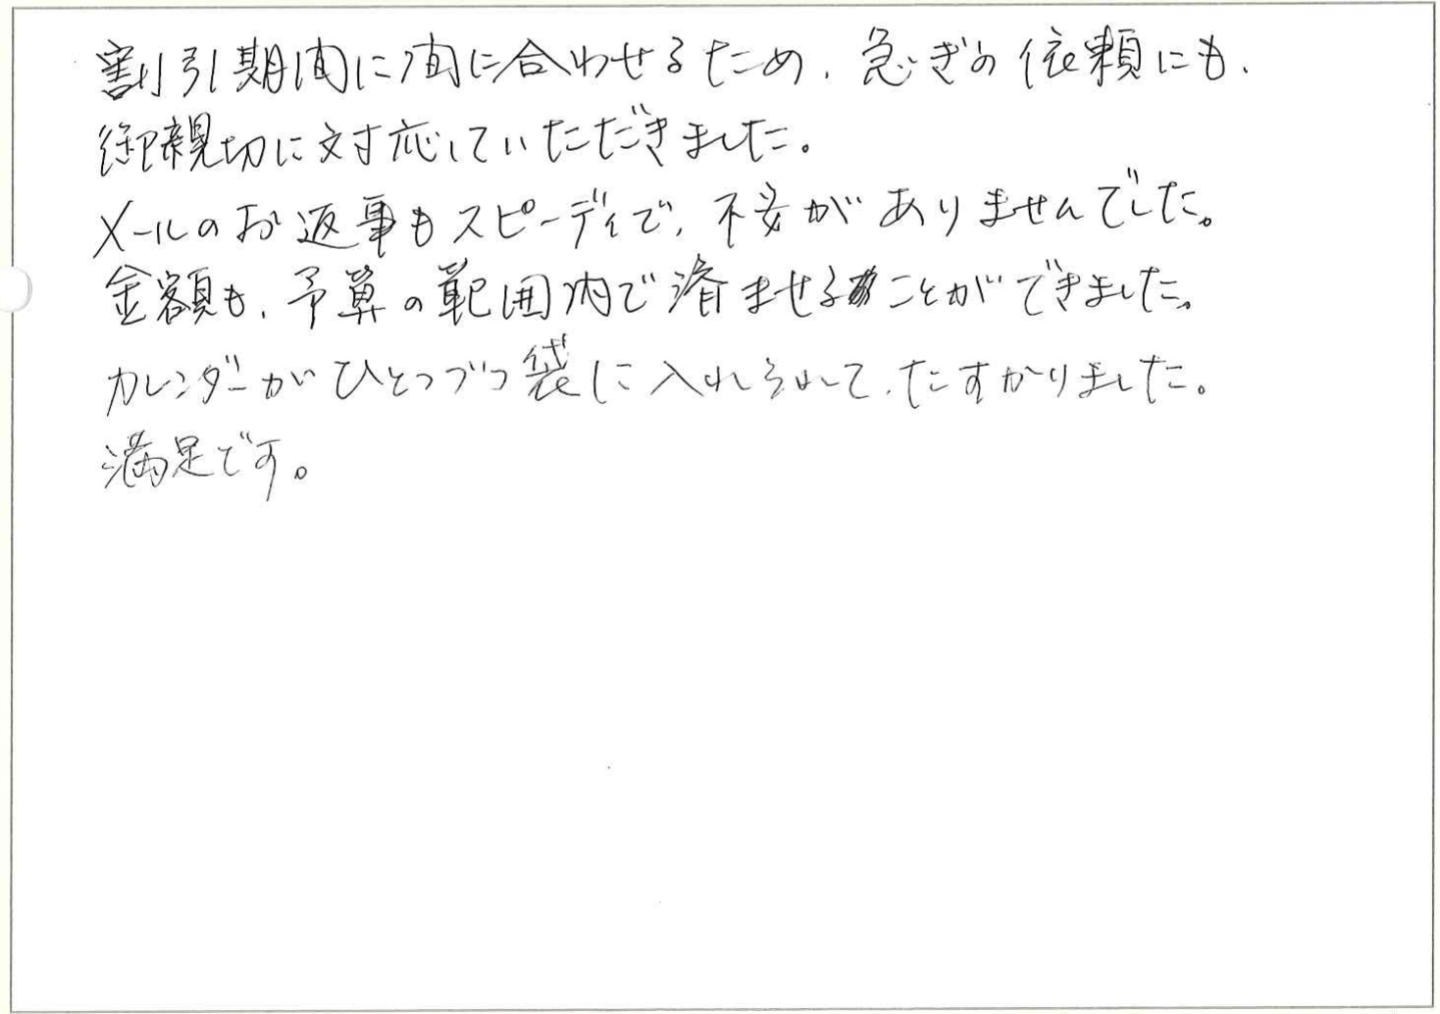 割引期間に間に合わせるため、急ぎの依頼にも、
御親切に対応していただきました。
メールのお返事もスピーディで、不安がありませんでした。
金額も、予算の範囲内で済ませることができました。
カレンダーがひとつづつ袋に入れられて、たすかりました。
満足です。